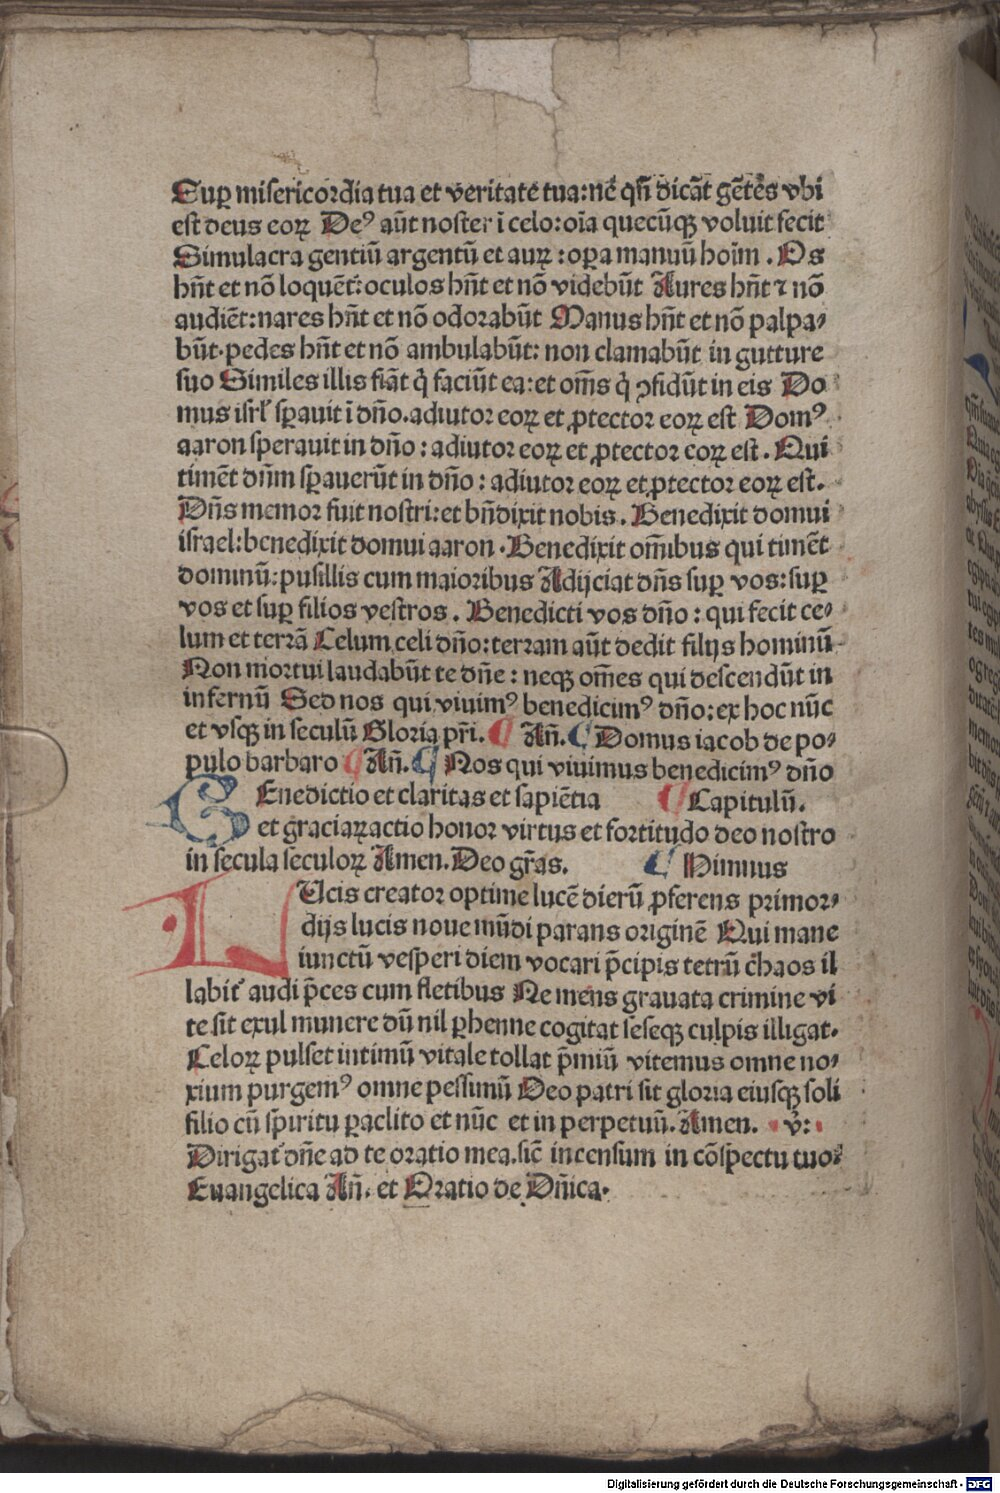 Suꝑ misericordia tua et veritate tua: nē qñ dicāt gētes vbi
est deus eoꝝ Deꝰ aūt noster ī celo: oīa quecūqꝫ voluit fecit
Simulacra gentiū argentū et auꝝ : opa manuū hoīm . Os
hñt et nō loquēt: oculos hñt et nō videbūt Aures hñt ⁊ nō
audiēt: nares hñt et nō odorabūt Manus hñt et nō palpa⸗
būt. pedes hñt et nō ambulabūt: non clamabūt in gutture
suo Similes illis fiāt q̇ faciūt ea: et om̄s q̇ ꝯfidūt in eis Do
mus isrl̓ sꝑauit ī dño. adiutor eoꝝ et ꝓtector eoꝝ est Domꝰ
aaron sperauit in dño : adiutor eoꝝ et ꝓtector eoꝝ est . Qui
timēt dñm sꝑauerūt in dño : adiutor eoꝝ et ꝓtector eoꝝ est.
Dñs memor fuit nostri: et bñdixit nobis . Benedixit domui
israel: benedixit domui aaron . Benedixit om̄ibus qui timēt
dominū: pusillis cum maioribus Adijciat dñs suꝑ vos: suꝑ
vos et suꝑ filios vestros . Benedicti vos dño : qui fecit ce⸗
lum et terrā Celum celi dño: terram aūt dedit filijs hominū
Non mortui laudabūt te dñe : neqꝫ om̄es qui descendūt in
infernū Sed nos qui viuimꝰ benedicimꝰ dño: ex hoc nūc
et vsqꝫ in seculū Gloria pr̄i. ¶ Añ. ¶ Domus iacob de po⸗
pulo barbaro ¶ Añ. ¶ Nos qui viuimus benedicimꝰ dño
Enedictio et claritas et sapiētia ¶ Capitulū.
et graciaꝝ actio honor virtus et fortitudo deo nostro
in secula seculoꝝ Amen. Deo gr̄as. ¶ Himnus
LUcis creator optime lucē dierū ꝓferens primor⸗
dijs lucis noue mūdi parans originē Qui mane
iunctū vesperi diem vocari p̄cipis tetrū chaos il
labit᷑ audi p̄ces cum fletibus Ne mens grauata crimine vi
te sit exul munere dū nil ꝑhenne cogitat seseqꝫ culpis illigat.
Celoꝝ pulset intimū vitale tollat p̄miū vitemus omne no⸗
xium purgemꝰ omne pessimū Deo patri sit gloria eiusqꝫ soli
filio cū spiritu ꝑaclito et nūc et in perpetuū. Amen. v̓:
Dirigat᷑ dñe ad te oratio mea. sic̄ incensum in cōspectu tuo⸗
Euangelica Añ. et Oratio de Dñica.
Digitalisierung gefördert durch die Deutsche Forschungsgemeinschaft - DFG